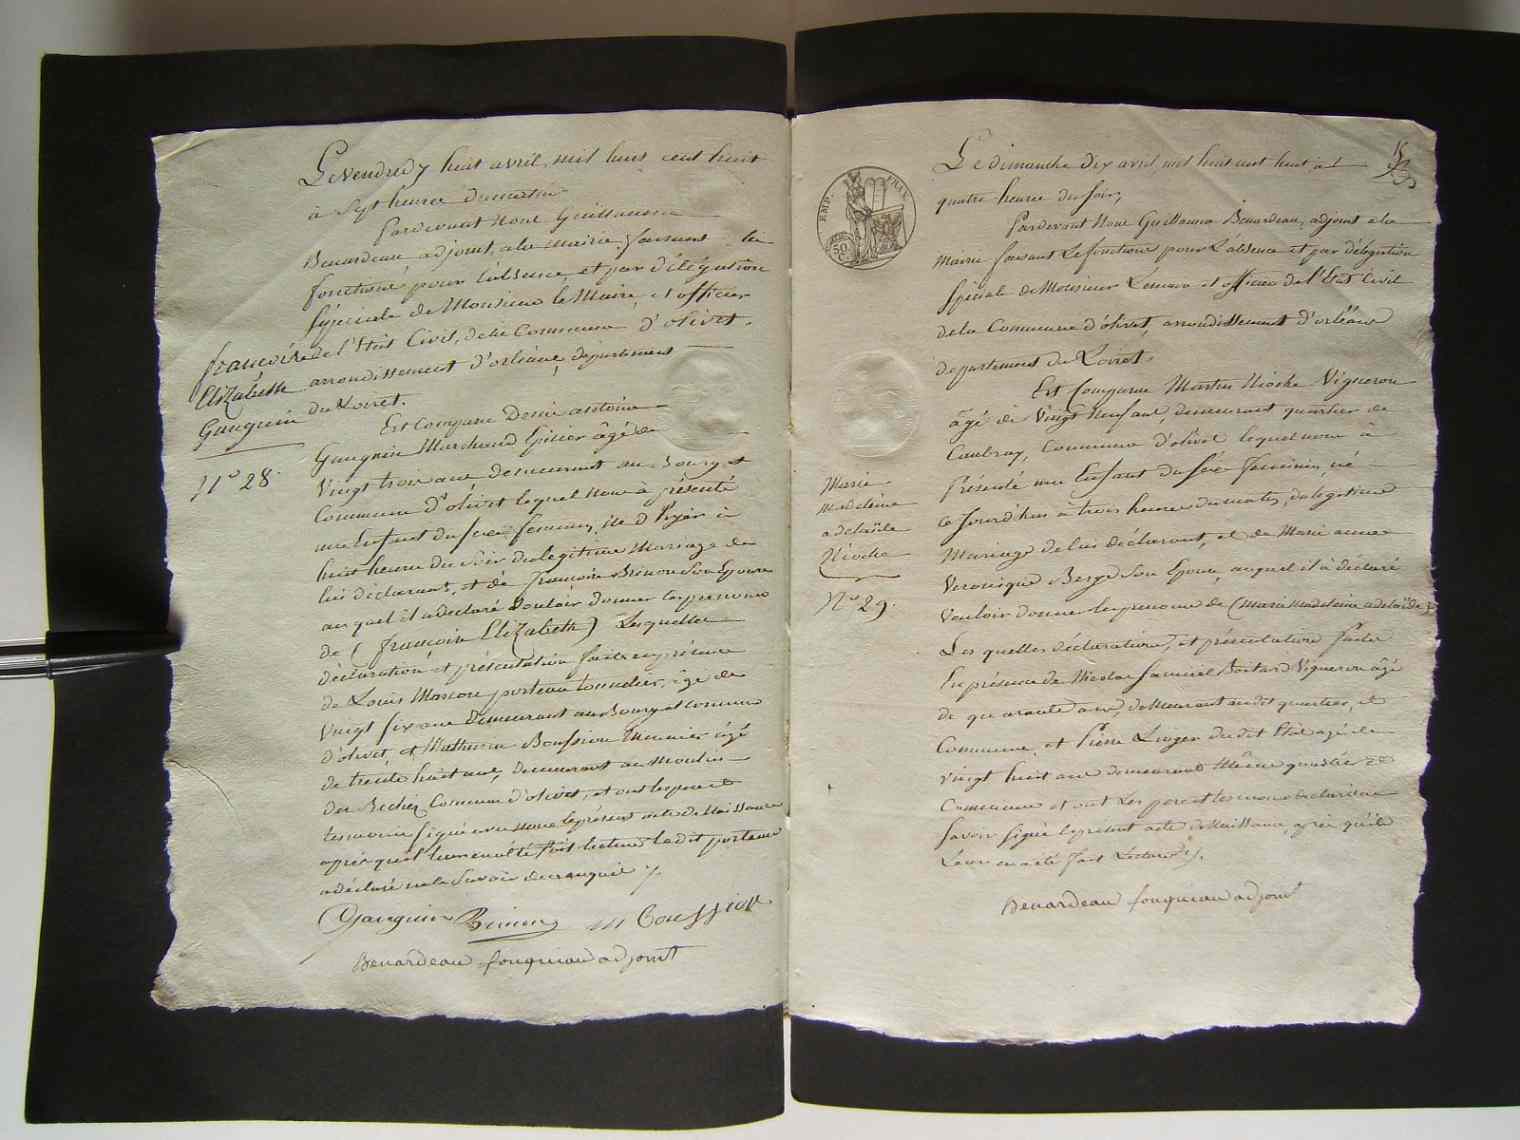 Le vendredy huit avril, mil huit cent huit
à Sept heures du matin
Pardevant Nous Guillaume
Benardeau adjoint, a la mairie faisant les
fonctions pour l'absence et par délégation
spéciale de Monsieur le Maire, et officier
de l'Etat Civil, de la Commune d'olivet.
arrondissement d'orléans, département
du Loiret.
françoise
Elizabeth
Gauguin
N° 28.
Est comparu Denis antoine
Gauguin Marchand Epicier âgé de
Vingt trois ans demeurant au Bourg et
Commune d'olivet lequel nous à présenté
un Enfant du sexe féminin, née d'hyer à
huit heures du Soir du légitime Mariage de
lui déclarant, et de françoise Brinon Son Epouse
auquel il a déclaré vouloir donner les prenoms
de (françoise Elizabeth) Lesquelles
déclaration et présentation faite en présence
de Louis porteau tonnelier, age de
Vingt six ans demeurant au Bourg et commune
d'olivet, et Mathurin Boussion Meunier âgé
de trente huit ans, demeurant au Moulin
du Bechet Commune d'olivet, et ont les pere et
temoins signé avec nous le présent acte de Naissance
après qu'il leur en a été fait lecture ledit porteau
a déclaré ne le Savoir de ce enquis /.
Gauguin Brinon m Boussion
Benardeau fouqueau adjoint
EMP. FRAN.
50 C.
15
Le dimanche dix avril, mil huit cent huit a
quatre heures du Soir,
Pardevant Nous Guillaume Benardeau, adjoint a la
Mairie faisant Les fonctions pour L'absence et par délégation
spéciale de Monsieur Lemaire et officier de l'Etat Civil
de la Commune d'olivet, arrondissement d'orléans
departement du Loiret.
Est Comparu Martin Nioche Vigneron
âgé de Vingt Neuf ans, demeurant quartier de
Caubray, Commune d'olivet lequel nous à
Présenté un Enfant du Sexe Feminin, né
ce Jourd'hui à trois heures du matin, du légitime
Mariage de lui déclarant, et de Marie anne
Veronique Bergé Son Epouse, auquel il à déclaré
Vouloir donner les prenoms de (Marie Madeleine adelaïde)
Marie
Madeleine
adelaïde
Nioche
N° 29.
Les quelles déclaration, et présentation faite
En présence de Nicolas Samüel Vigneron âgé
de quarante ans, demeurant audit quartier, et
Commune, et Pierre Luzer dudit Etat agé de
Vingt huit ans demeurant Même quartier et
Commune et ont Les pere et temoins déclaré ne
Savoir signer le présent acte de Naissance, après qu'il
Leur en a été fait Lecture /.
Benardeau fouqueau adjoint